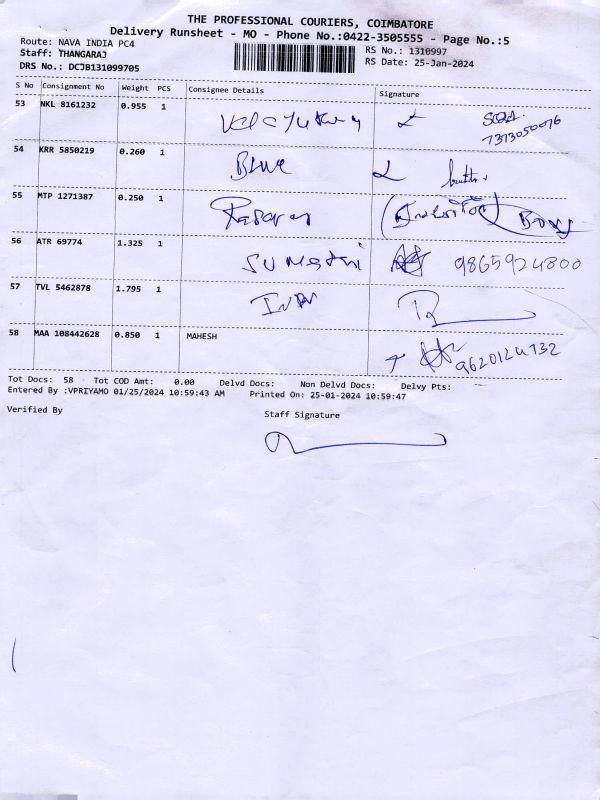 THE PROFESSIONAL COURIERS, COIMBATORE
Delivery Runsheet - MO - Phone No.:0422-3505555 - Page No.:5
Route: NAVA INDIA PC4
RS No.: 1310997
Staff: THANGARAJ
RS Date: 25-Jan-2024
DRS No.: DCJB131099705
S No Consignment No Weight PCS Consignee Details Signature
53 NKL 8161232 0.955 1
7373050076
54 KRR 5850219 0.260 1 Blue
55 MTP 1271387 0.250 1
56 ATR 69774 1.325 1 SUMathi 9865924800
57 TVL 5462878 1.795 1
58 MAA 108442628 0.850 1 MAHESH 9620124732
Tot Docs: 58 Tot COD Amt: 0.00 Delvd Docs: Non Delvd Docs: Delvy Pts:
Entered By :VPRIYAMO 01/25/2024 10:59:43 AM Printed On: 25-01-2024 10:59:47
Verified By
Staff Signature